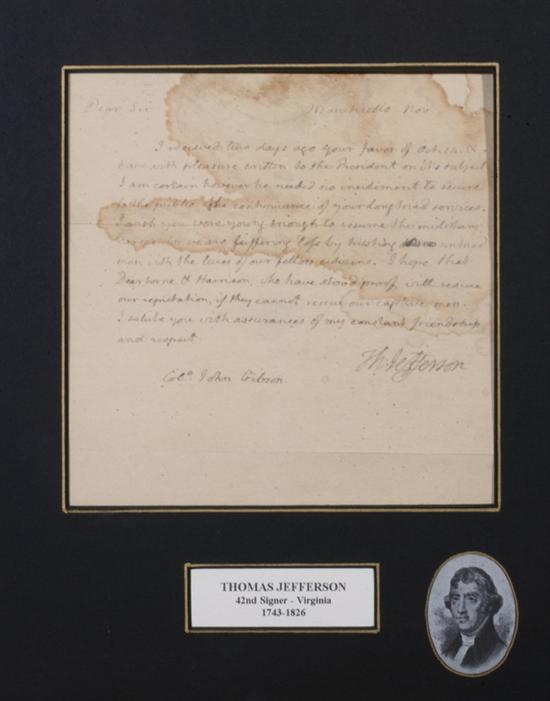 Dear Sir Monticello Nov.
I received two days ago your favor of Oct. 14. &
have with pleasure written to the President on it's subject
I am certain however he needed no incidement to secure
to the public the continuance of your long tried services.
I wish you were young enough to resume the military
we are suffering by trusting untried
men with the lives of our fellow citizens. I hope that
Dearborne & Harrison, who have stood proof, will rescue
our reputation, if they cannot rescue our captive men.
I salute you with assurances of my constant friendship
and respect
Th: Jefferson
Colo. John Gibson.
THOMAS JEFFERSON
42nd Signer - Virginia
1743-1826